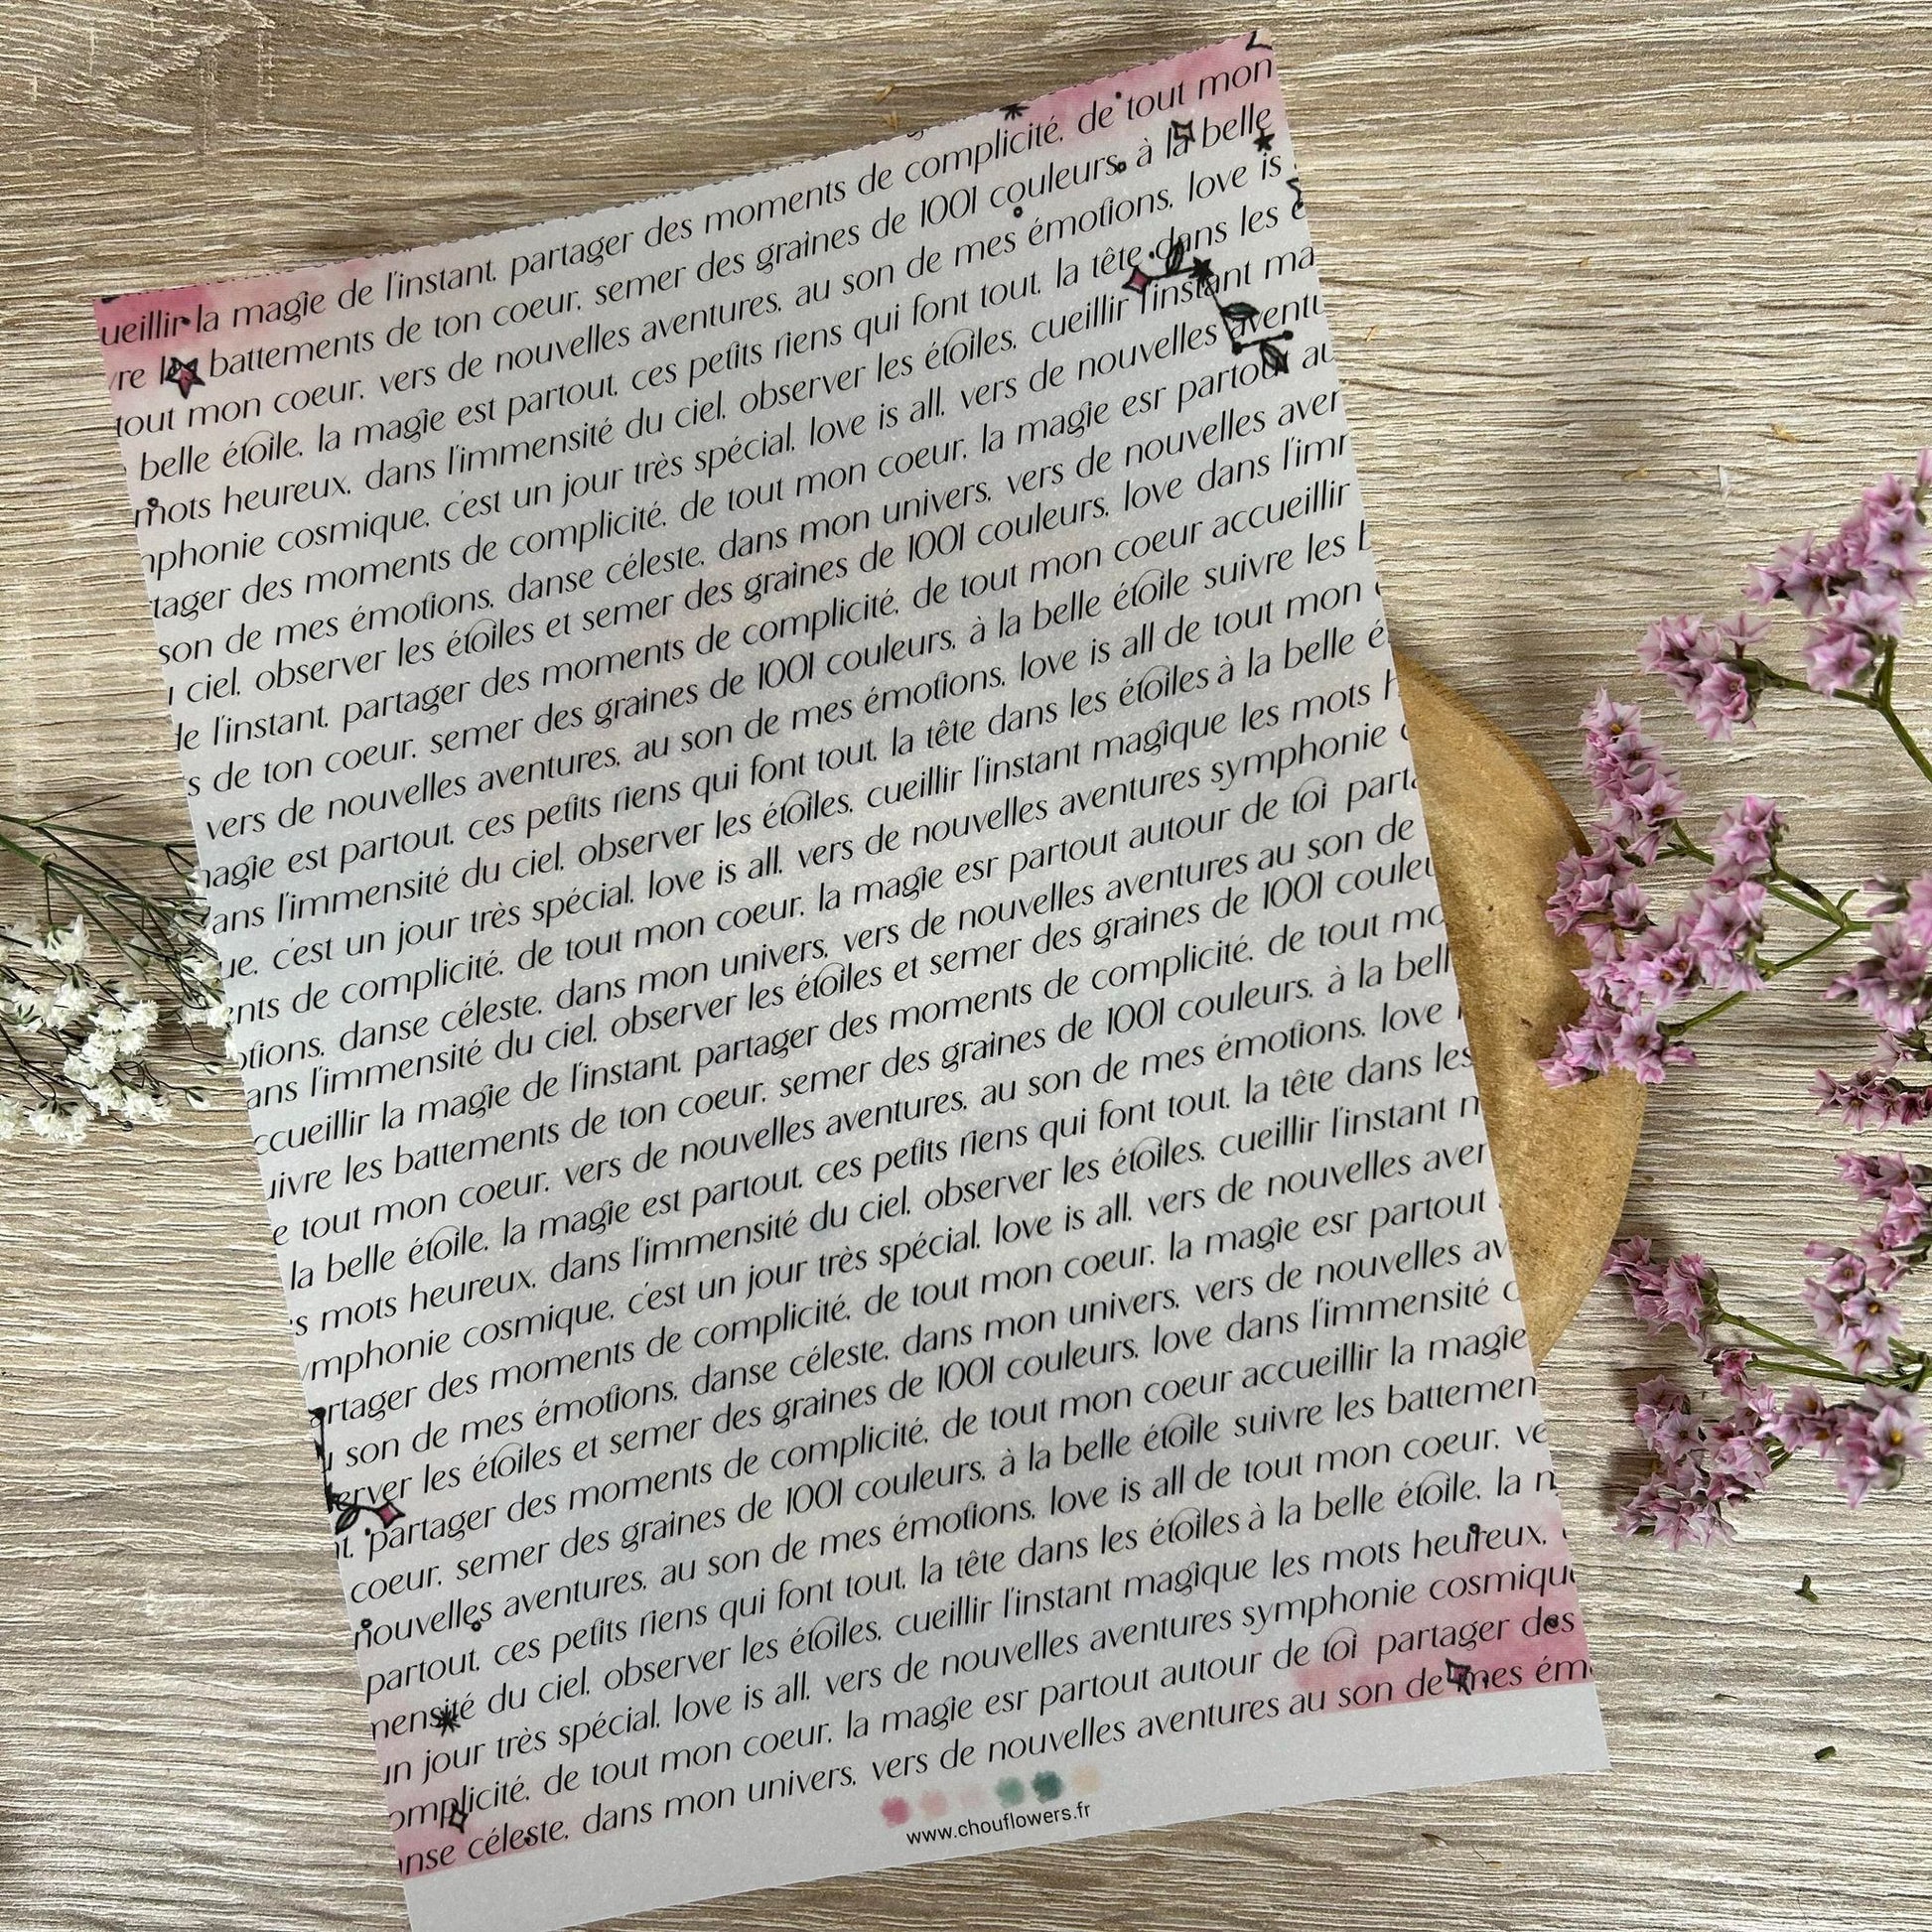 ueillir la magie de l'instant, partager des moments de complicité, de tout mon
vre les battements de ton coeur, semer des graines de 1001 couleurs, à la belle
tout mon coeur, vers de nouvelles aventures, au son de mes émotions, love is
belle étoile, la magie est partout, ces petits riens qui font tout, la tête dans les é
mots heureux, dans l'immensité du ciel, observer les étoiles, cueillir l'instant ma
nphonie cosmique, c'est un jour très spécial, love is all, vers de nouvelles aventu
tager des moments de complicité, de tout mon coeur, la magie esr partout au
son de mes émotions, danse céleste, dans mon univers, vers de nouvelles aven
ciel, observer les étoiles et semer des graines de 1001 couleurs, love dans l'imm
de l'instant, partager des moments de complicité, de tout mon coeur accueillir
s de ton coeur, semer des graines de 1001 couleurs, à la belle étoile suivre les b
vers de nouvelles aventures, au son de mes émotions, love is all de tout mon c
nagie est partout, ces petits riens qui font tout, la tête dans les étoiles à la belle é
ans l'immensité du ciel, observer les étoiles, cueillir l'instant magique les mots h
ue, c'est un jour très spécial, love is all, vers de nouvelles aventures symphonie c
ents de complicité, de tout mon coeur, la magie esr partout autour de toi parta
otions, danse céleste, dans mon univers, vers de nouvelles aventures au son de
ans l'immensité du ciel, observer les étoiles et semer des graines de 1001 couleu
ccueillir la magie de l'instant, partager des moments de complicité, de tout mo
uivre les battements de ton coeur, semer des graines de 1001 couleurs, à la bell
e tout mon coeur, vers de nouvelles aventures, au son de mes émotions, love i
la belle étoile, la magie est partout, ces petits riens qui font tout, la tête dans les
s mots heureux, dans l'immensité du ciel, observer les étoiles, cueillir l'instant m
ymphonie cosmique, c'est un jour très spécial, love is all, vers de nouvelles aven
artager des moments de complicité, de tout mon coeur, la magie esr partout
u son de mes émotions, danse céleste, dans mon univers, vers de nouvelles av
erver les étoiles et semer des graines de 1001 couleurs, love dans l'immensité d
nt, partager des moments de complicité, de tout mon coeur accueillir la magie
coeur, semer des graines de 1001 couleurs, à la belle étoile suivre les battemen
nouvelles aventures, au son de mes émotions, love is all de tout mon coeur, ve
partout, ces petits riens qui font tout, la tête dans les étoiles à la belle étoile, la m
mensité du ciel, observer les étoiles, cueillir l'instant magique les mots heureux,
un jour très spécial, love is all, vers de nouvelles aventures symphonie cosmique
omplicité, de tout mon coeur, la magie esr partout autour de toi partager des
anse céleste, dans mon univers, vers de nouvelles aventures au son de mes émo
www.chouflowers.fr